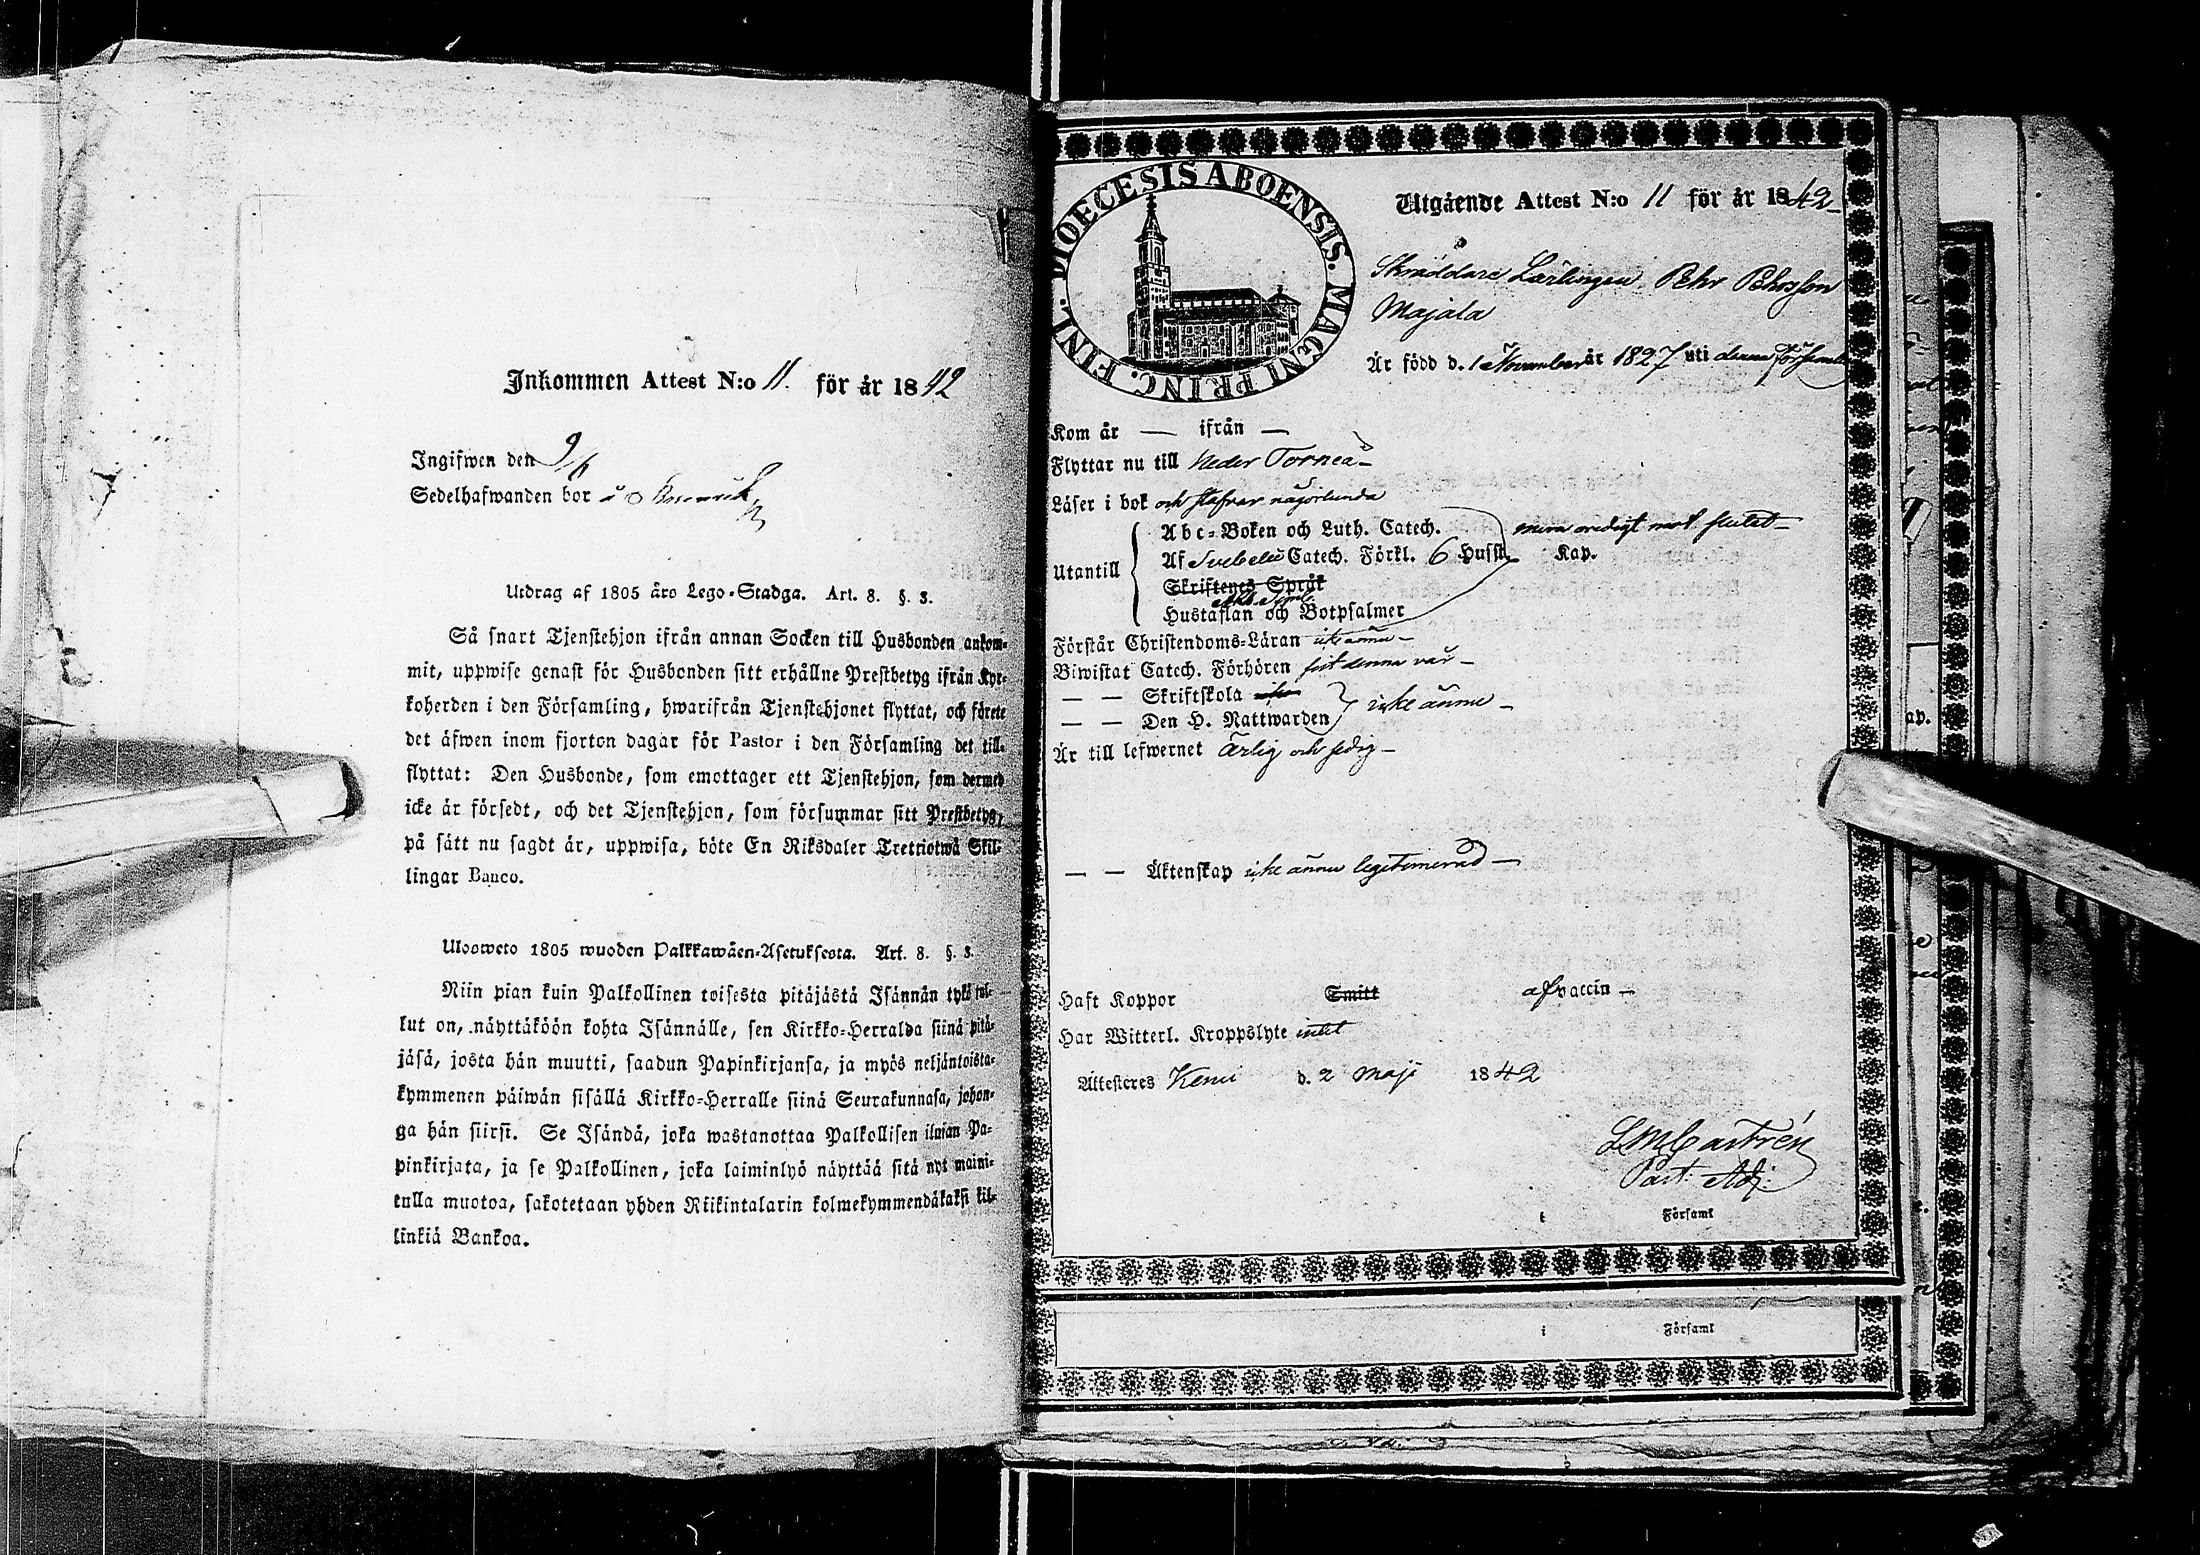 Inkommen Attest N:o 11. för år 1842
Ingifwen den 9/6
Sedelhafwanden bor å
Utdrag af 1805 års Lego-Stadga. Art. 8. §. 3.
Så snart Tjenstehjon ifrån annan Socken till Husbonden ankom-
mit, uppwise genast för Husbonden sitt erhållne Prestbetyg ifrån Kyr-
koherden i den Församling, hwarifrån Tjenstehjonet flyttat, och förete
det äfwen inom fjorton dagar för Pastor i den Församling det till-
flyttat: Den Husbonde, som emottager ett Tjenstehjon, som dermed
icke är försedt, och det Tjenstehjon, som försummar sitt Prestbetyg,
på sätt nu sagdt är, uppwisa, böte En Riksdaler Trettiotwå Skil-
lingar Banco.
Ulosweto 1805 wuoden Palkkawäen-Asetuksesta. Art. 8. §. 3.
Niin pian kuin Palkollinen toisesta pitäjästä Isännän tykö tul-
lut on, näyttäköön kohta Isännälle, sen Kirkko-Herralda siinä pitä-
jäsä, josta hän muutti, saadun Papinkirjansa, ja myös neljäntoista-
kymmenen päiwän sisällä Kirkko-Herralle siinä Seurakunnasa, johon-
ga hän siirsi. Se Isändä, joka wastanottaa Palkollisen ilman Pa-
pinkirjata, ja se Palkollinen, joka laiminlyö näyttää sitä nyt maini-
tulla muotoa, sakotetaan yhden Riikintalarin kolmekymmendäkaksi kil-
linkiä Bankoa.
DIOECESIS ABOENSIS. MAGNI PRINC. FINL.
Utgående Attest N:o 11 för år 1842
Skräddare Lärlingen Pehr Pehrsson
Majala
Är född d. 1 November år 1827 uti denna Församling
Kom år — ifrån —
Flyttar nu till Neder Torneå
Läser i bok och stafvar någorlunda
Abc-Boken och Luth. Catech.
Utantill Af Svebelii Catech. Förkl. 6 Hufst. Kap.
mera oredigt mot slutet
Skriftenes Språk
Hustaflan och Botpsalmer
Förstår Christendoms-Läran icke ännu
Biwistat Catech. Förhören sist denna vår
— — Skriftskola
— — Den H. Nattwarden icke ännu
Är till lefwernet ärlig och sedig
— — Äktenskap icke ännu legitimerad
Haft Koppor Smitt af vaccin
Har Witterl. Kroppslyte intet
Attesteres Kemi d. 2 Maji 1842
L M Castrén
Past. Adj.
i Församl
i Församl